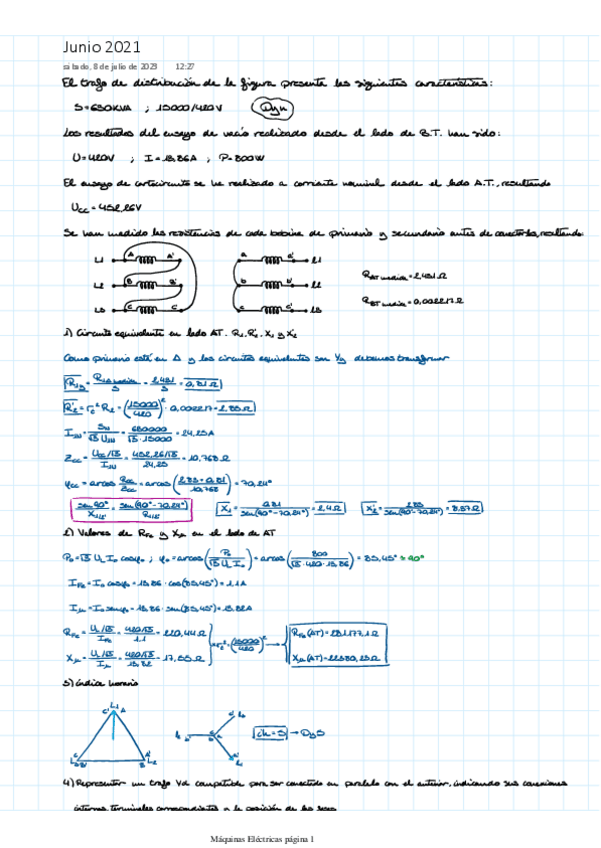 Junio 2021
sábado, 8 de julio de 2023 12:27
El trafo de distribución de la figura presenta las siguientes características:
S=630KVA ; 15000/420V Dyn
Los resultados del ensayo de vacío realizado desde el lado de B.T. han sido:
U=420V ; I=13,86A ; P=800W
El ensayo de cortocircuito se ha realizado a corriente nominal desde el lado A.T., resultando
Ucc=452,26V
Se han medido las resistencias de cada bobina de primario y secundario antes de conectarlas, resultando:
L1 A A' a a' l1
L2 B B' b b' l2
L3 C C' c c' l3
RAT medida = 2,431 Ω
RBT medida = 0,00223 Ω
1) Circuito equivalente en lado AT. R1, R2', X1 y X2'
Como primario está en Δ y los circuitos equivalentes son Yy debemos transformar
= 0,81 Ω
= 2,85 Ω
I1N = SN/√3 U1N = 630000/√3·15000 = 24,25A
Zcc = Ucc/√3/I1N = 452,26/√3/24,25 = 10,768 Ω
φcc = arcos Rcc/Zcc = arcos (2,85+0,81/10,768) = 70,24°
X1 = 0,81/sen(90°-70,24°) = 2,4 Ω
X2' = 2,85/sen(90°-70,24°) = 8,37 Ω
2) Valores de RFe y Xμ en el lado de AT
P0=√3 UL I0 cosφ0 ; φ0=arcos(P0/√3 UL I0)=arcos(800/√3·420·13,86)=85,45°
IFe = I0 cosφ0 = 13,86 · cos(85,45°) = 1,1A
Iμ = I0 senφ0 = 13,86 · sen(85,45°) = 13,82A
RFe = UL/√3/IFe = 420/√3/1,1 = 220,44 Ω
Xμ = UL/√3/Iμ = 420/√3/13,82 = 17,55 Ω
RFe(AT) = 281177,1 Ω
Xμ(AT) = 22380,23 Ω
3) Índice horario
ih=5 → Dy5
4) Representar un trafo Yd compatible para ser conectado en paralelo con el anterior, indicando sus conexiones
internas, terminales correspondientes y la posición de las fases
Máquinas Eléctricas página 1